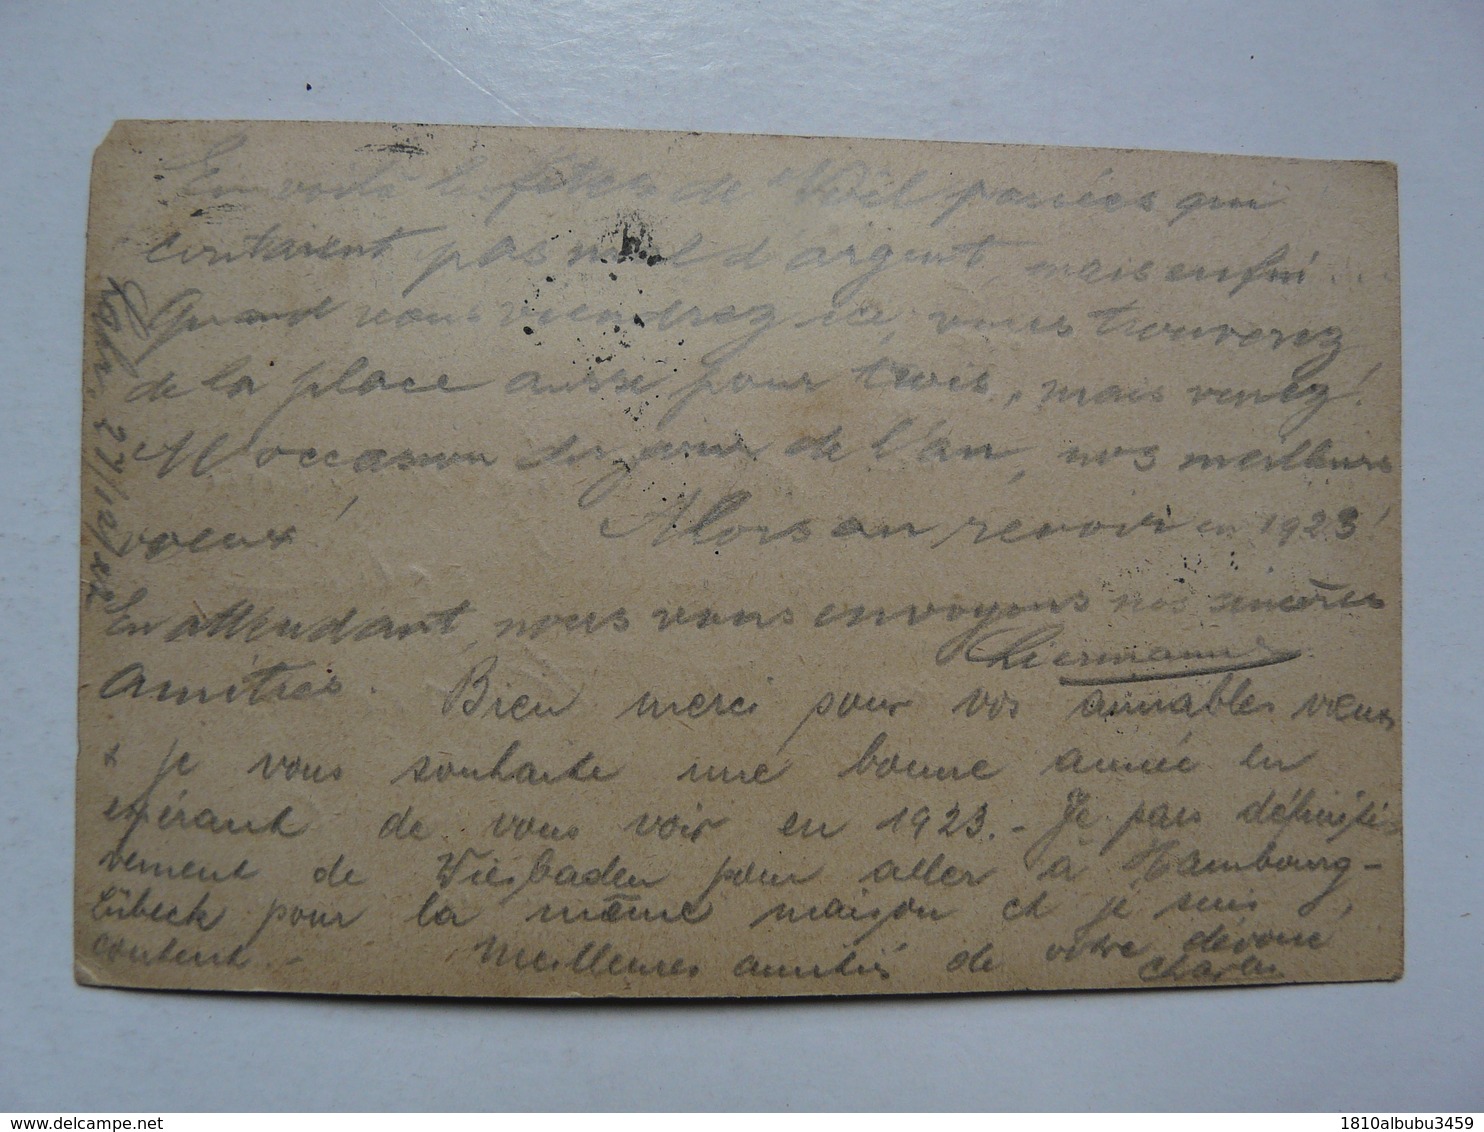 En voilà les fêtes de Noël passées qui
coutaient pas mal d'argent, mais enfin
Quand vous viendrez ici, vous trouverez
de la place aussi pour trois, mais venez!
A l'occasion du jour de l'an, nos meilleurs
voeux! Alors au revoir en 1923!
En attendant, nous vous envoyons nos sincères
amitiés.
Bien merci pour vos aimables vœux
+ je vous souhaite une bonne année en
espérant de vous voir en 1923. - Je pars définiti-
vement de Wiesbaden pour aller à Hambourg-
Lübeck pour la même maison et je suis
content. - Meilleures amitiés de votre dévoué
Charles
27/12/22
1810albubu3459